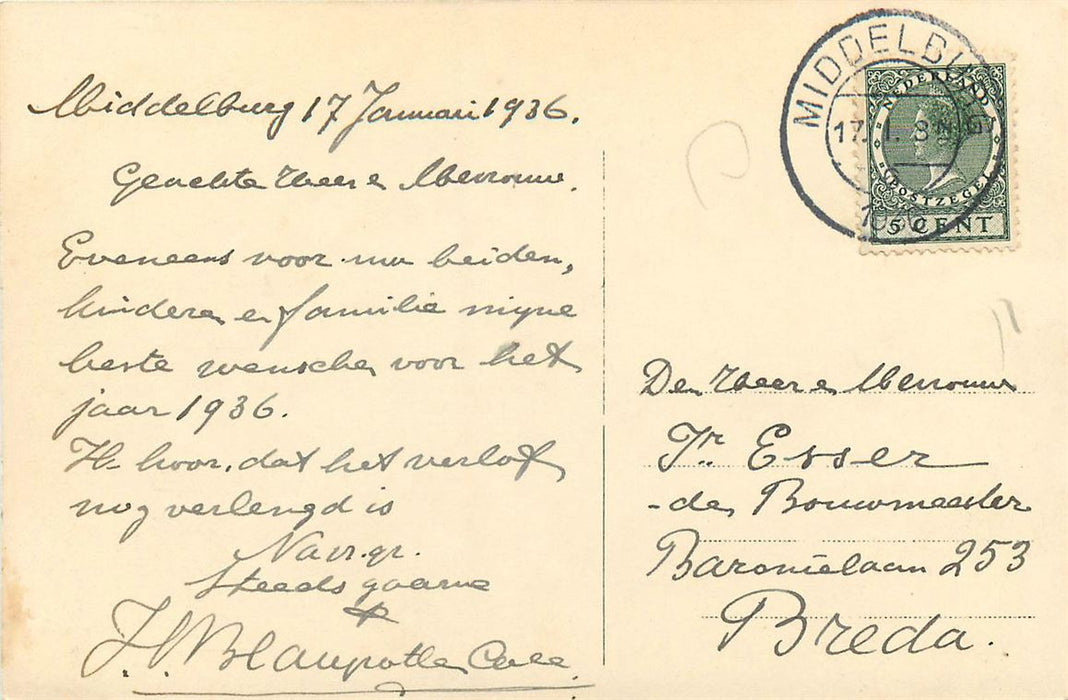 Middelburg 17 Januari 1936.
Geachte Heer en Mevrouw.
Eveneens voor uw beiden,
kinderen en familie mijne
beste wenschen voor het
jaar 1936.
Ik hoor, dat het verlof
nog verlengd is
Steeds gaarne
MIDDELBURG
1936
NEDERLAND
POSTZEGEL
5 CENT
Den Heer en Mevrouw
Ir. Esser
- den Bouwmeester
Baronielaan 253
Breda.